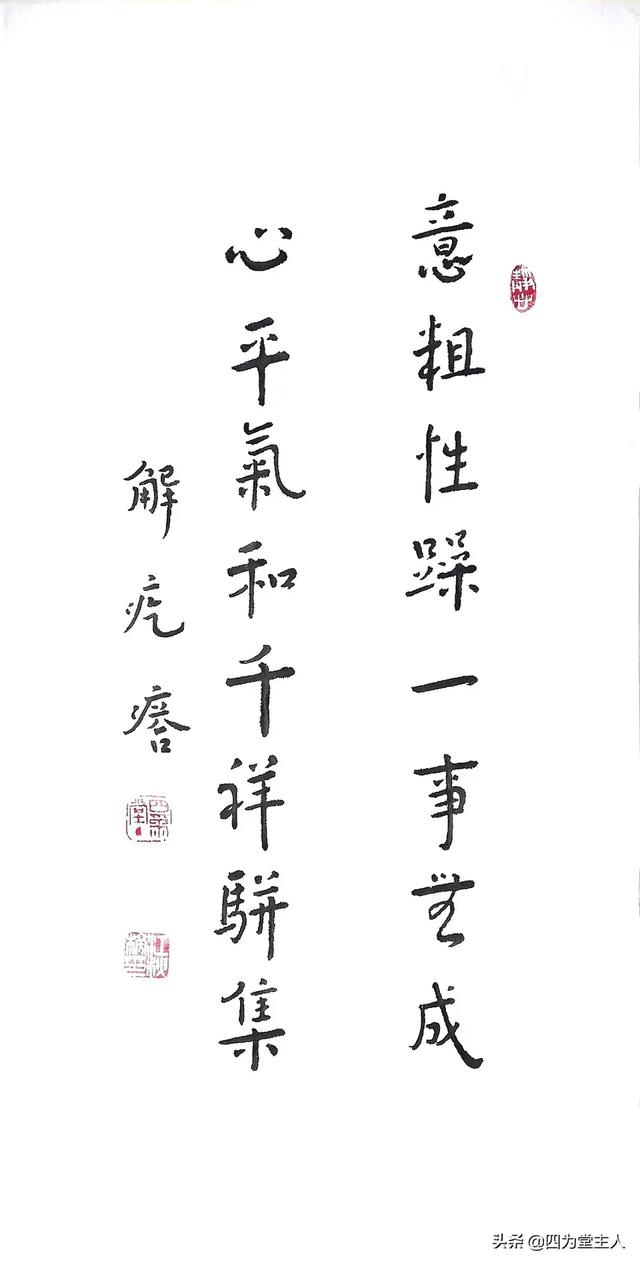 意粗性躁一事無成
心平氣和千祥駢集
解疙瘩
头条 @四为堂主人